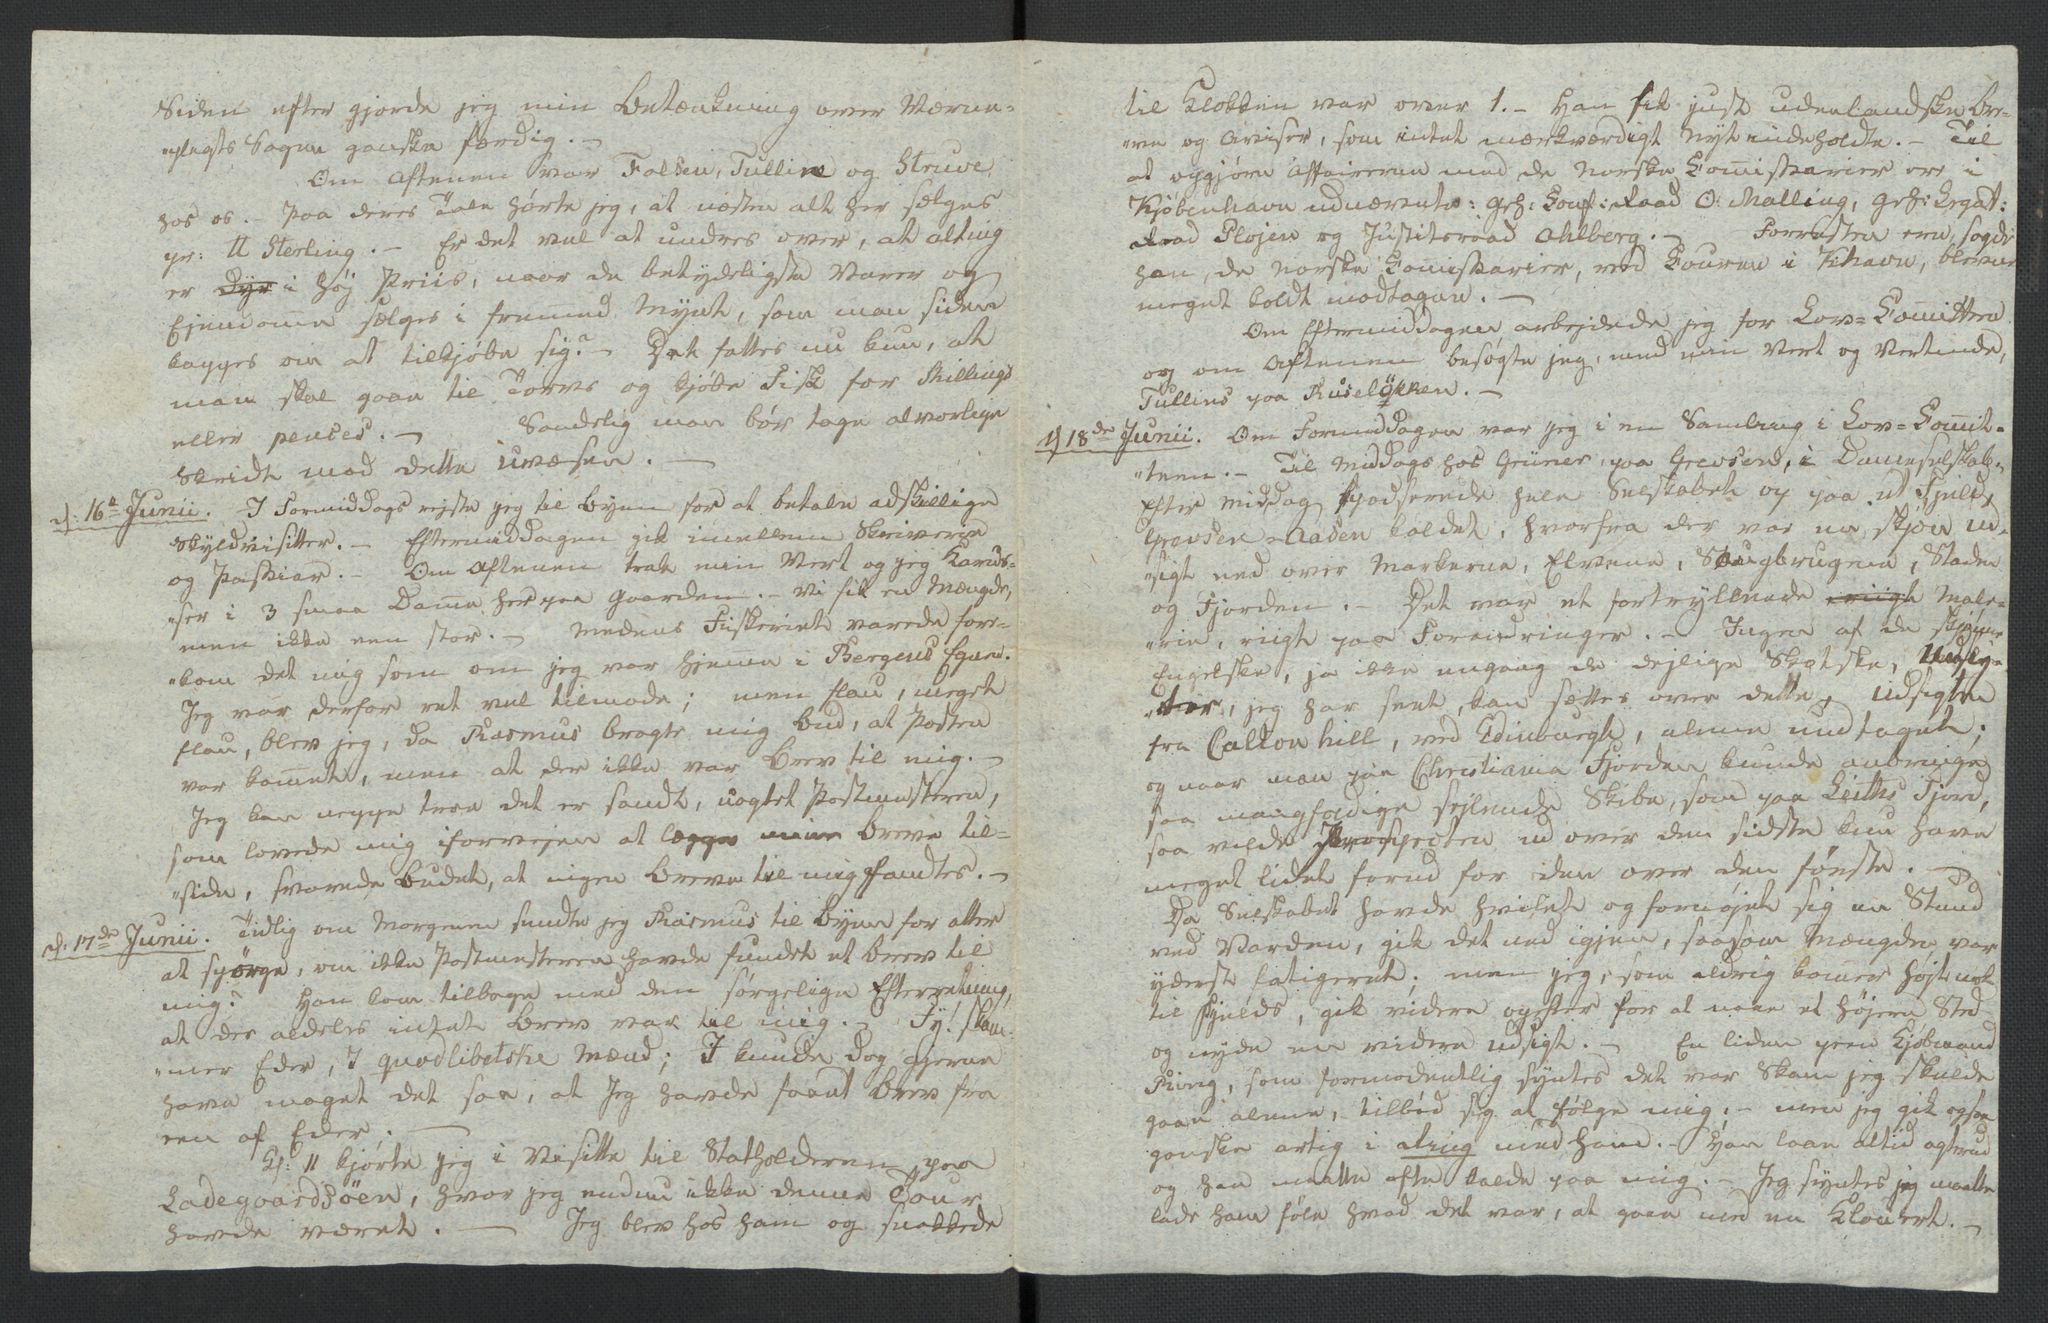 Siden efter gjorde jeg min Betænkning over Værne-
"pligts Sagen ganske færdig. –
Om Aftenen var Falsen, Tullin og Struve
hos os. – Paa deres Tale hørte jeg, at næsten alt her sælges
pr: ₶ Sterling. – Er det vel at undres over, at alting
er dyr i høj Priis, naar de betydeligste Varer og
Ejendomme sælges i fremmed Mynt, som man siden
kappes om at tilkjøbe sig? – Det fattes nu kun, at
man skal gaae til Torvs og kjøbe Fisk for Skillings
eller pences. – Sandelig man bør tage alvorlige
Skridt mod dette Uvæsen. –
d: 16de Junii. I Formiddags rejste jeg til Byen for at betale adskillige
Skyldvisitter. – Eftermiddagen gik imellem Skriverie
og Passiar. – Om Aftenen trak min Vert og jeg Karus-
"ser i 3 smaa Damme her paa Gaarden. – Vi fik en Mængde,
men ikke een stor. – Medens Fiskeriet varede fore-
"kom det mig som om jeg var hjemme i Bergens Egnen.
Jeg var derfor ret vel tilmode; men flau, meget
flau, blev jeg, da Rasmus bragte mig Bud, at Posten
var kommet, men at der ikke var Brev til mig. –
Jeg kan neppe troe det er sandt, uagtet Postmesteren,
som lovede mig iforvejen at lægge mine Breve til-
"side, svarede Budet, at ingen Breve til mig fandtes. –
d: 17de Junii. Tidlig om Morgenen sendte jeg Rasmus til Byen for atter
at spørge, om ikke Postmesteren havde fundet et Brev til
mig? Han kom tilbage med den sørgelige Efterretning,
at der aldeles intet Brev var til mig. – Fy! skam-
"mer Eder, I quodlibetske Mænd; I kunde dog gjerne
have maget det saa, at Jeg havde faaet Brev fra
een af Eder. –
Kl: 11 kjørte jeg i Visitte til Statholderen paa
Ladegaardsöen, hvor jeg endnu ikke denne Tour
havde været. – Jeg blev hos ham og snakkede
til Klokken var over 1. – Han fik just udenlandske Bre-
"ve og Aviser, som intet mærkværdigt Nyt indeholdte. – Til
at opgjøre Affairerne med de Norske Commissarier ere i
Kjøbenhavn udnævnte: Geh: Conf: Raad O: Malling, Geh: Legat:
Raad Plojen og Justitsraad Ahlberg. – Forresten ere, sagde
han, de Norske Commissarier, ved Couren i Khavn, blevne
meget koldt modtagne. –
Om Eftermiddagen arbejdede jeg for Lov-Comitteen
og om Aftenen besøgte jeg, med min Vert og Vertinde,
Tullins paa Ruseløkken. –
d: 18de Junii. Om Formiddagen var jeg i en Samling i Lov-Comit-
"teen. – Til Middags hos Grüner paa Grevsen, i Dameselskab.
Efter Middag spadserede hele Selskabet op paa et Fjeld,
Grevsen-Aasen kaldet, hvorfra der var en skjøn Ud-
"sigt ned over Markerne, Elvene, Saugbrugene, Staden
og Fjorden. – Det var et fortryllende Male-
"rie, riigt paa Forandringer. – Ingen af de skjønne
Engelske, ja ikke engang de dejlige Skotske, Udsig-
"ter, jeg har seet, kan sættes over dette, Udsigten
fra Calton hill, ved Edinburgh, alene undtaget;
og naar man paa Christiania Fjorden kunde anbringe
saa mangfoldige sejlende Skibe, som paa Leiths Fjord,
saa vilde Prospecten ud over den sidste kun have
meget lidet forud for den over den første. –
Da Selskabet havde hvilet og fornøjet sig en Stund
ved Varden, gik det ned igjen, saasom Mængden var
yderst fatigeret; men jeg, som aldrig kommer højt nok
til Fjelds, gik videre opefter for at naae et højere Sted
og nyde en videre Udsigt. – En liden peen Kjøbmand
Ring, som formodentlig syntes det var Skam jeg skulde
gaae alene, tilbød sig at følge mig; – men jeg gik ogsaa
ganske artig i Ring med ham. – Han laae altid agterud
og han maatte ofte kalde paa mig. – Jeg syntes jeg maatte
lade ham føle hvad det var, at gaae med en Klovert. –